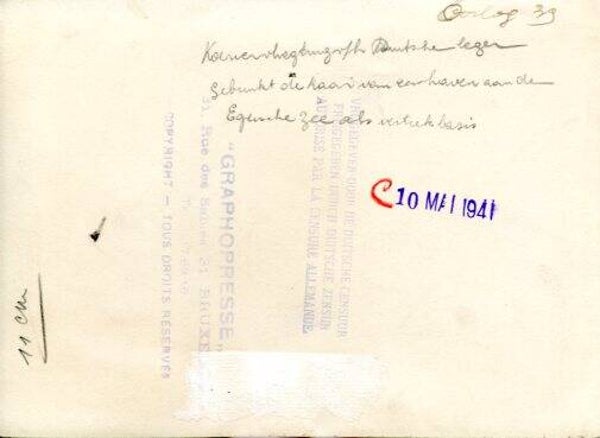 Oorlog 39
Duitsche leger
Gebruikt de kaai van een haven aan de
Egeische Zee als vertrekbasis
10 MAI 1941
11 cm
COPYRIGHT — TOUS DROITS RÉSERVÉS
31, Rue des
"GRAPHOPRESSE"
AUTORISÉ PAR LA CENSURE ALLEMANDE
FREIGEGEBEN DURCH DEUTSCHE ZENSUR
VRIJGEGEVEN DOOR DE DUITSCHE CENSUUR